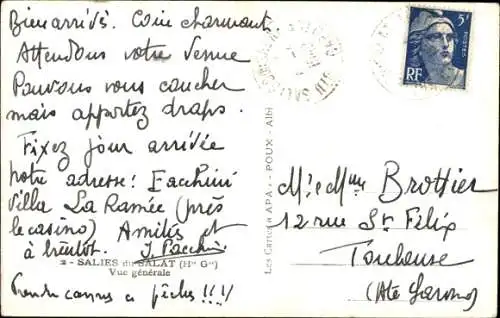 Bien arrivés. Coin charmant.
Attendons votre venue
Pouvons vous coucher
mais apportez draps.
Fixez jour arrivée
notre adresse : Facchini
Villa La Ramée (près
le casino) Amitiés et
à bientôt. J. Facchini
2 - SALIES du SALAT (Hte Gne)
Vue générale
Prendre cannes a pêches !!!!
Les Cartes APA - POUX - ALBI
5F
POSTES
RF
Mr et Mme Brottier
12 rue St Félix
Toulouse
(Hte Garonne)